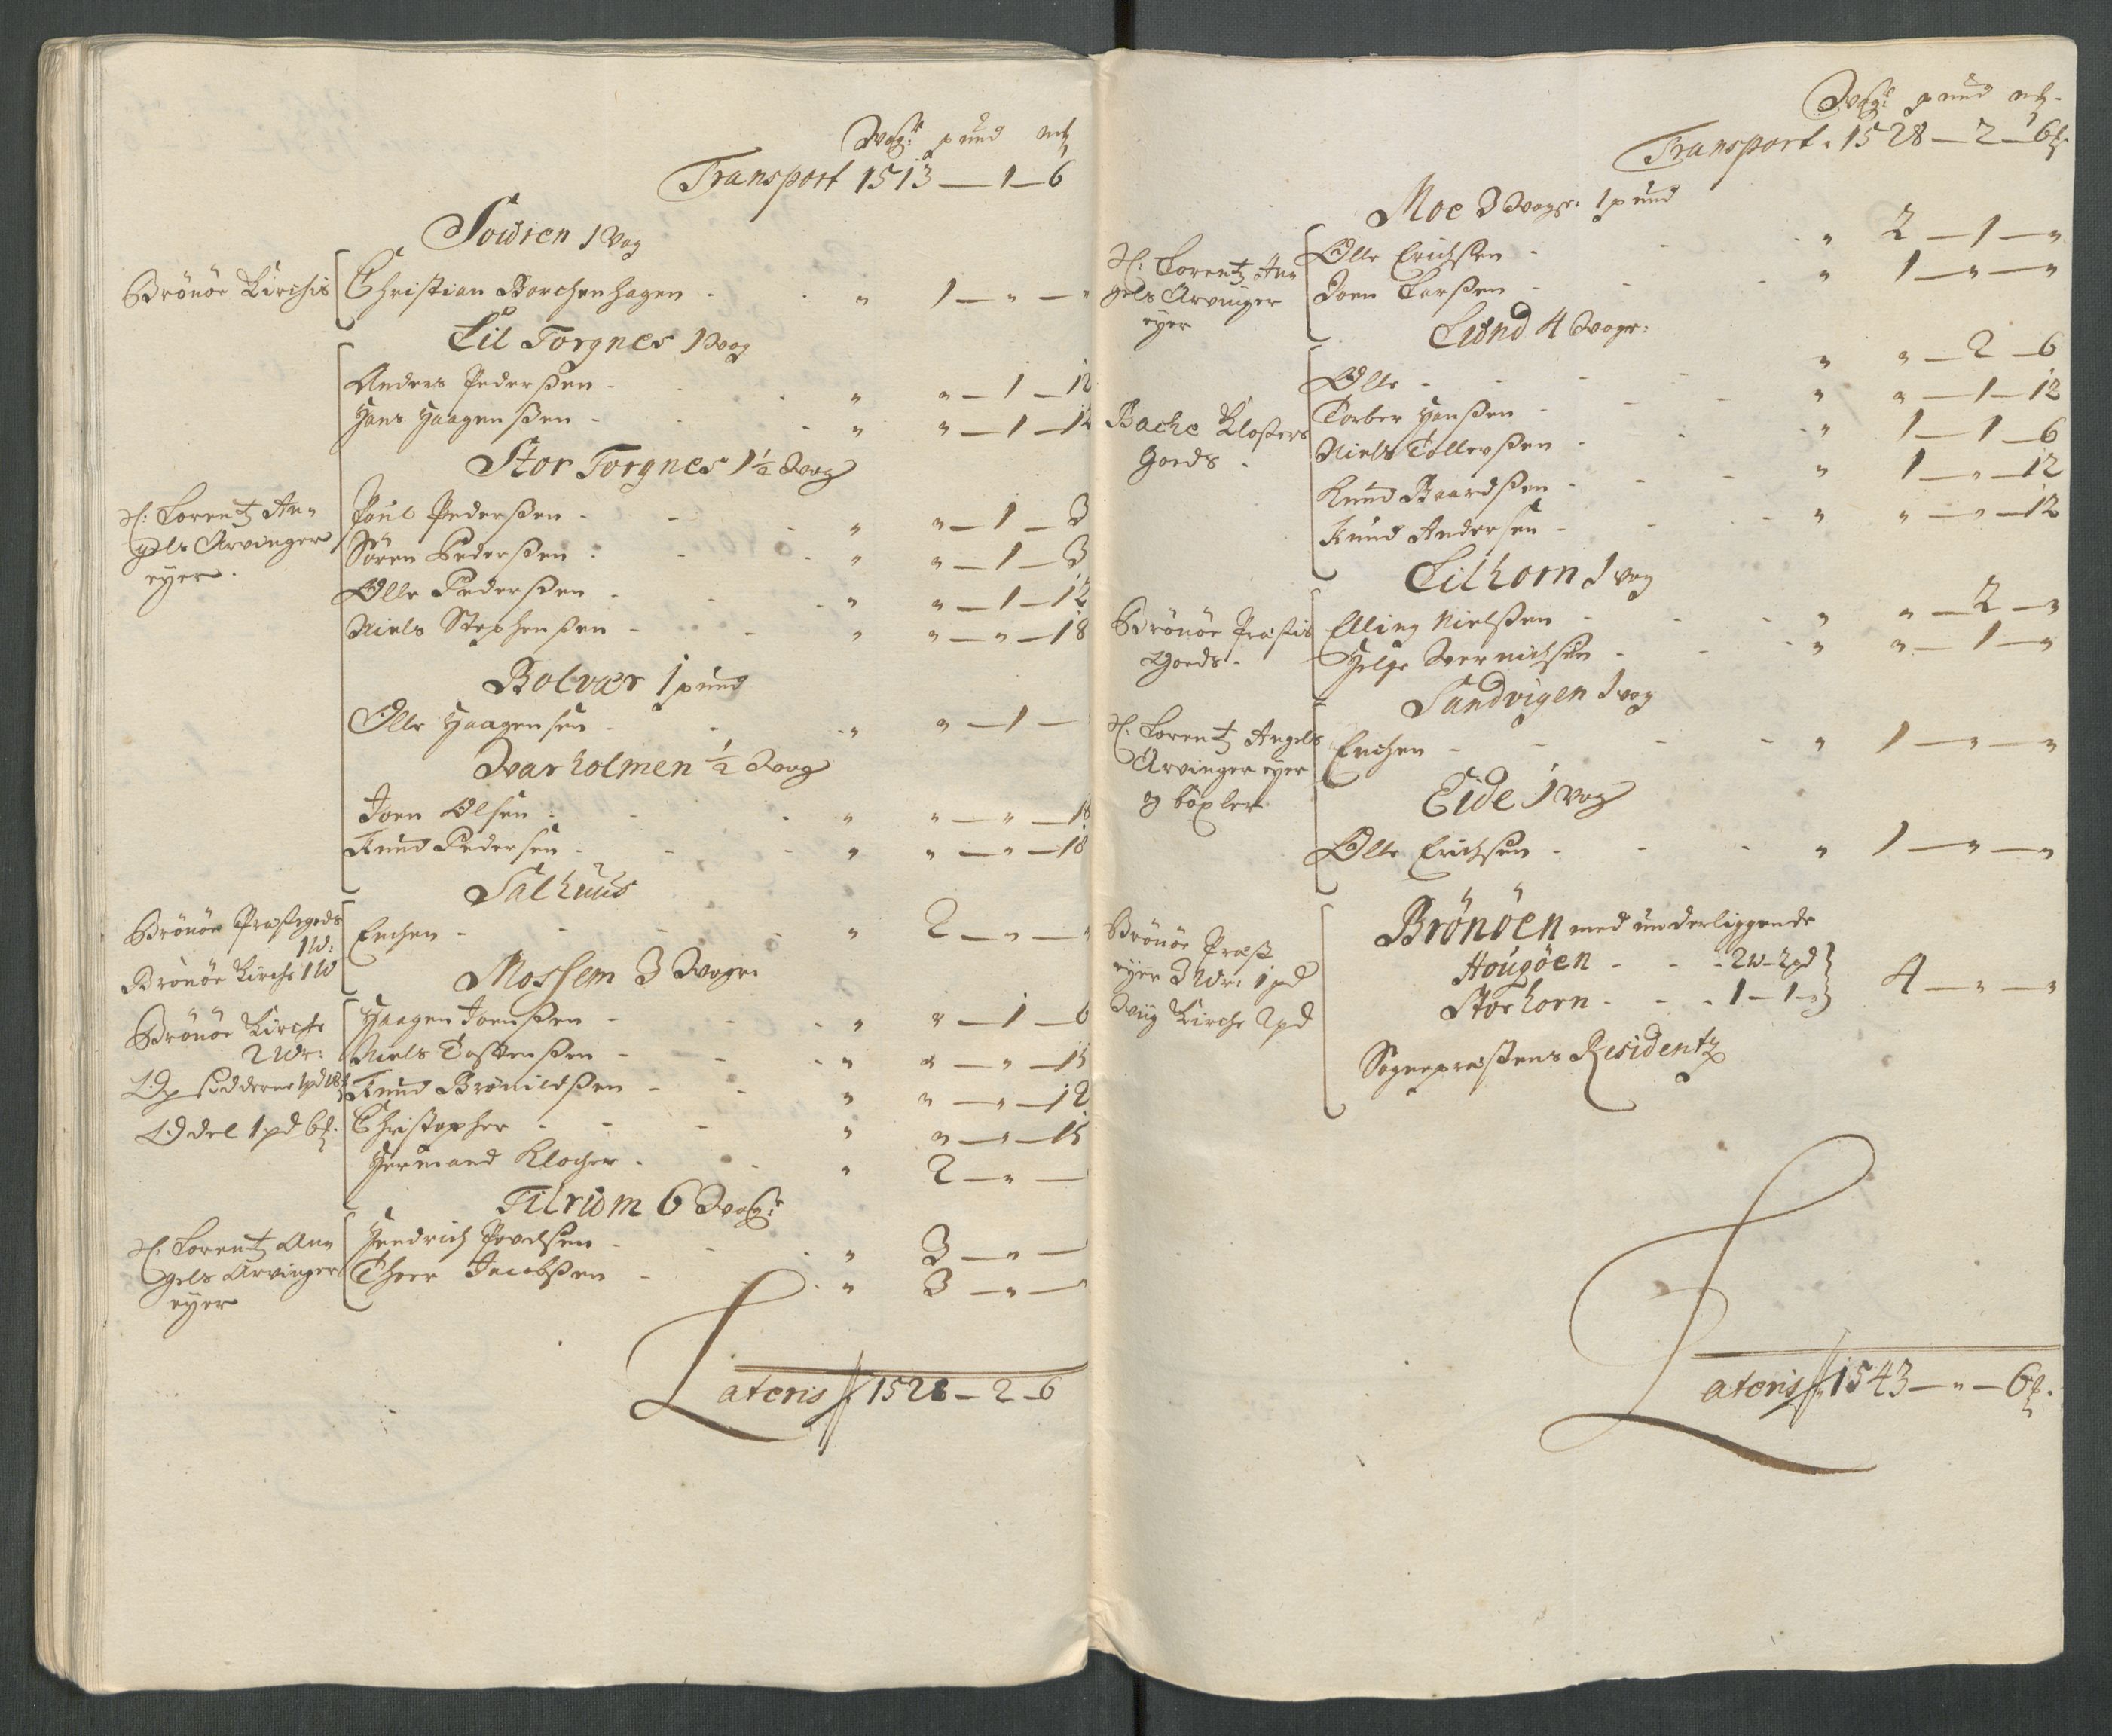 Wog:r pund mk
Transport 1513 — 1 — 6
Sowren 1 Wog
Brönöe Kirchis Christian Borchenhagen - - „ 1 — „ — „
Lil Torgnes 1 Wog
Anders Pederßen - - „ „ — 1 — 12
Hans Haagenßen - - „ „ — 1 — 12
Stor Torgnes 1½ Wog
H: Lorentz An„
gels Arvinger
eyer.
Poul Pederßen - - „ „ — 1 — 3
Sören Pederßen - - „ „ — 1 — 3
Olle Pederßen - - „ „ — 1 — 12
Niels Stephenßen - - „ „ — „ — 18
Bolvær 1 pund
Olle Haagensen - - „ „ — 1 —
Warholmen ½ Wog
Joen Olsen - - „ „ — „ — 18
Knud Pedersen - - „ „ — „ — 18
Salhuus
Brönöe Præstegods
1 W:
Brönöe Kirche 1 W
Enchen - - „ 2 — „ — „
Mossem 3 Woger
Brönöe Kirche
2 Wr:
Op 1pd 18
Oddel 1 pd 6
Haagen Joenßen - - „ „ — 1 — 6
Niels - - „ „ — „ — 15
Knud - - „ „ — „ — 12
Christopher - - „ „ — „ — 15
Hermand Klocher - - „ 2 — „ —
Tilrum 6 Wog:r
H: Lorentz An„
gels Arvinger
eyer
Hendrich - - „ 3 — „ —
Jacobßen - - „ 3 — „ —
Lateris 1528 — 2 — 6
Wog:r pund mk
Transport . 1528 — 2 — 6
Moe 3 Woger: 1 pund
H: Lorentz An„
gels Arvinger
eyer
Olle Erichsen - - „ 2 — 1 — „
Joen Larßen - - „ 1 — „ — „
Lund 4 Woger:
Bache Klosters
Goeds.
Olle - - - „ „ — 2 — 6
Torber Hanßen - - „ „ — 1 — 12
Niels Tollevßen - - „ 1 — 1 — 6
Knud Baardßen - - „ 1 — „ — 12
Knud Andersen - - „ „ — „ — 12
Lilhorn 1 Wog
Brönöe Præstis
Goeds.
Elling Nielßen - - „ „ — 2 — „
Helge - - „ „ — 1 — „
Sandvigen 1 Wog
H: Lorentz Angels
Arvinger eyer
og böxler
Enchen - - - „ 1 — „ — „
Eide 1 Wog
Olle Erichsen - - „ 1 — „ — „
Brönöe Præst
eyer 3 Wr: 1 pd
Wiig Kirche 2 pd
Brönöen med underliggende
Hougöen - - - 2 W - 2 pd
Storhorn - - - 1 — 1 — „ 4 — „ — „
Sognepræstens Residentz
Lateris 1543 — „ — 6